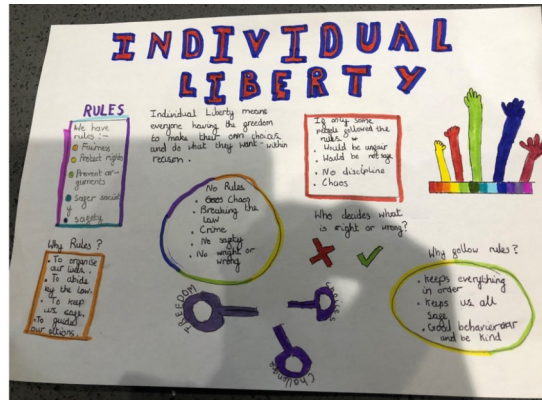 INDIVIDUAL
LIBERTY
RULES
We have
rules :-
Fairness
Protect rights
Prevent ar-
guments
Safer societ
y
safety
Individual Liberty means
everyone having the freedom
to make their own choices
and do what they want within
reason.
If only some
people followed the
rules.
• Would be unfair
• Would be not safe
• No discipline
• Chaos
No Rules
• Chaos
• Breaking the
Law
• Crime
• No safty
• No wright or
wrong
Who decides what
is right or wrong?
Why Rules?
• To organise
our lives.
• To abide
by the law.
• To keep
us safe.
• To guide
our actions.
Why follow rules?
• Keeps everything
in order
• Keeps us all
safe
• Good behavior
and be kind
FREEDOM
Challenges